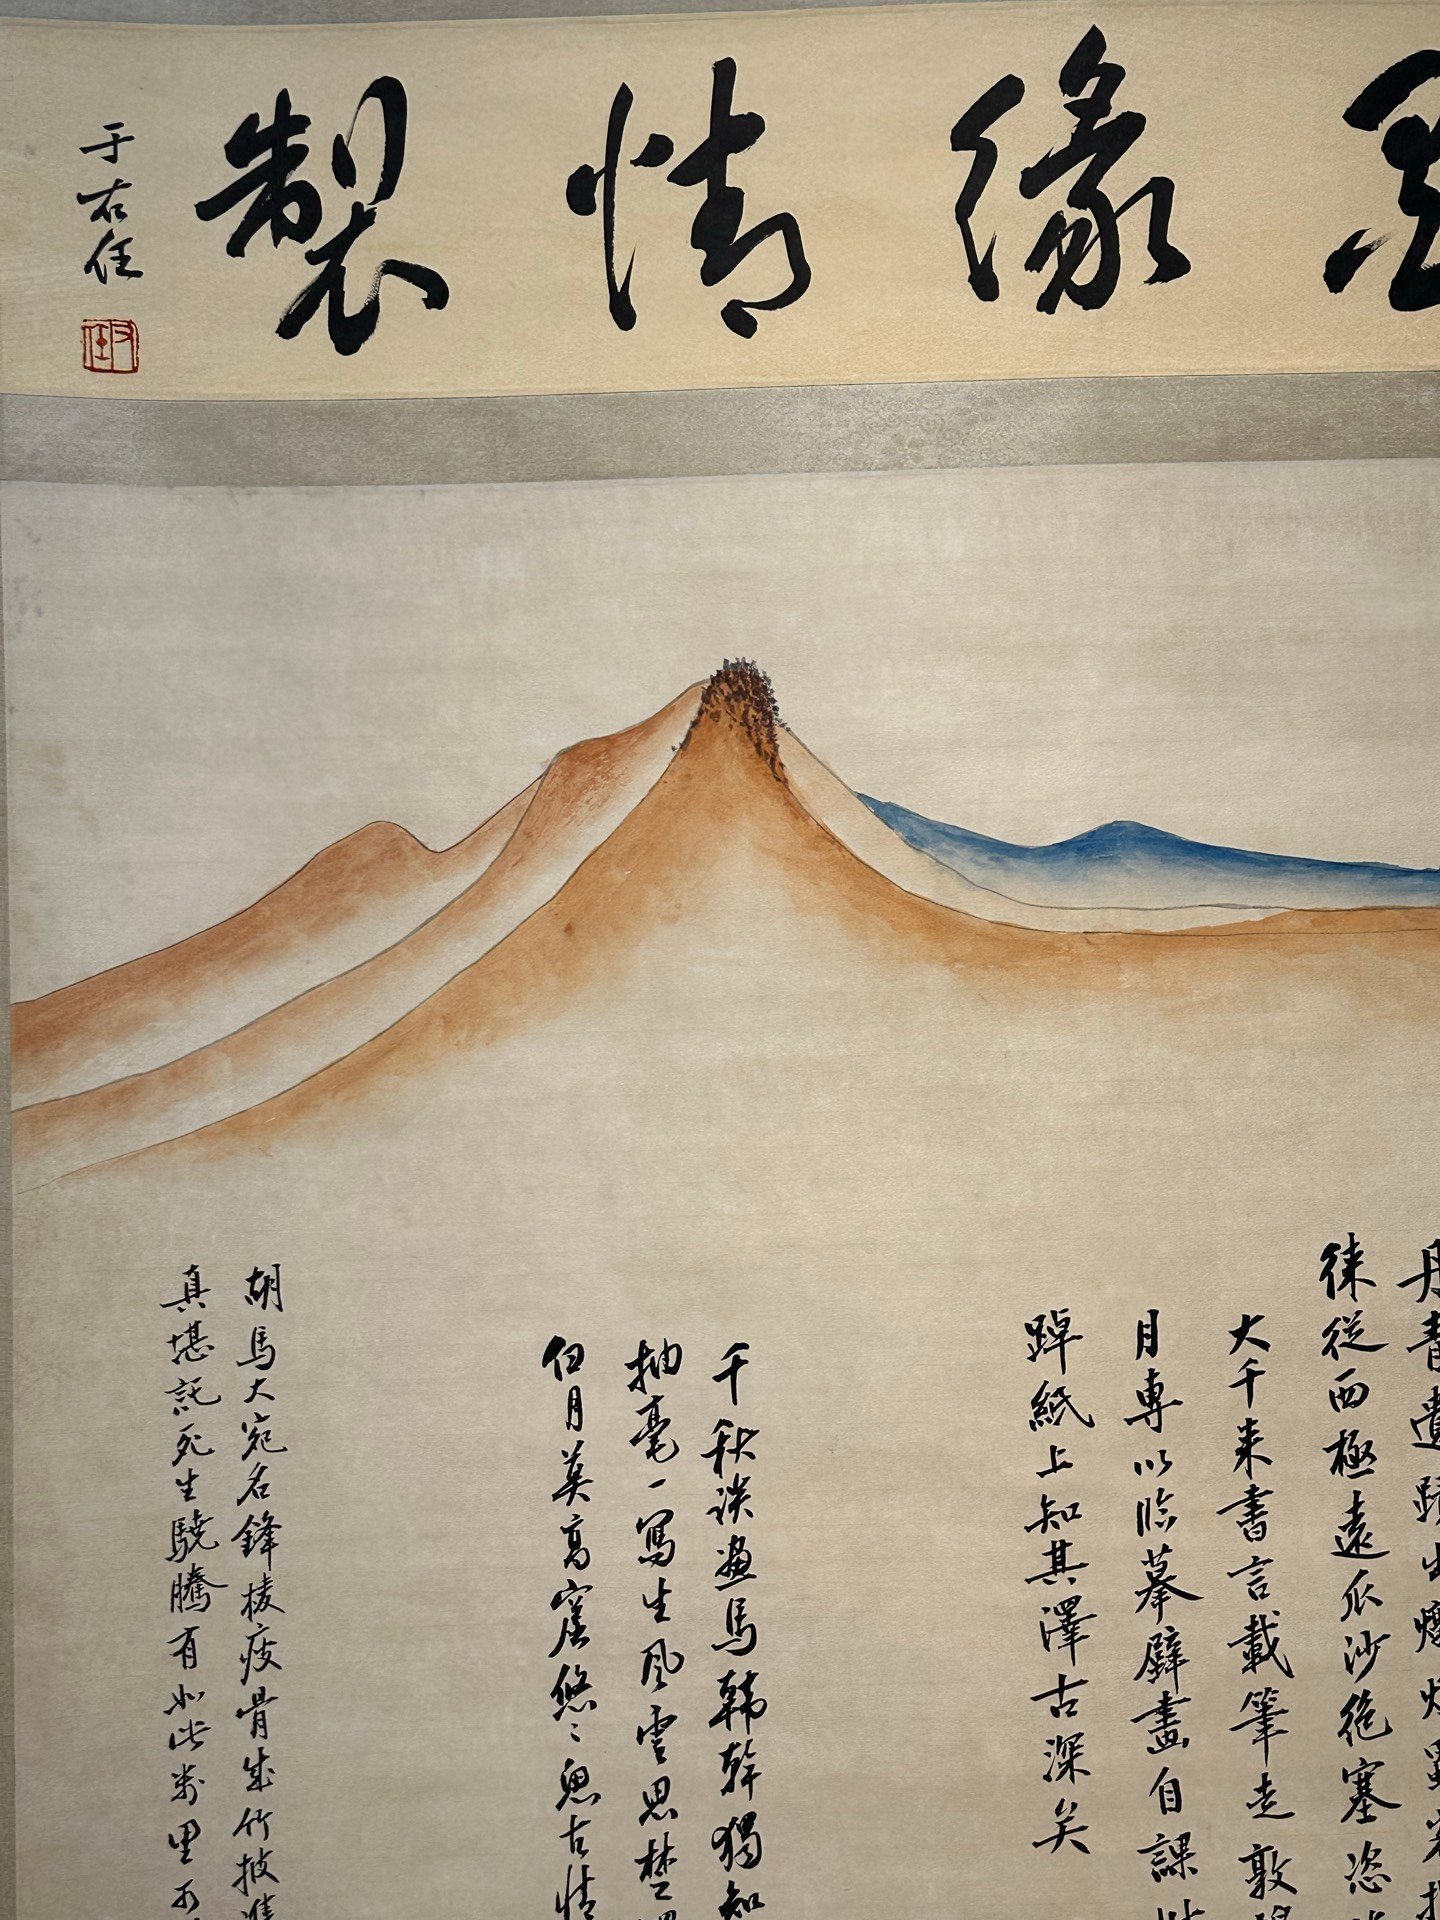 墨緣情製
于右任
右任
丹青遺蹟出
徠從西極遠瓜沙絶塞恣
大千来書言載筆走敦
月專以臨摹壁畫自課
踔紙上知其澤古深矣
千秋談畫馬韓幹獨知
抽毫一寫生風雲思楚
但月莫高窟悠悠思古情
胡馬大宛名鋒棱瘦骨成竹披
真堪託死生驍騰有如此萬里可